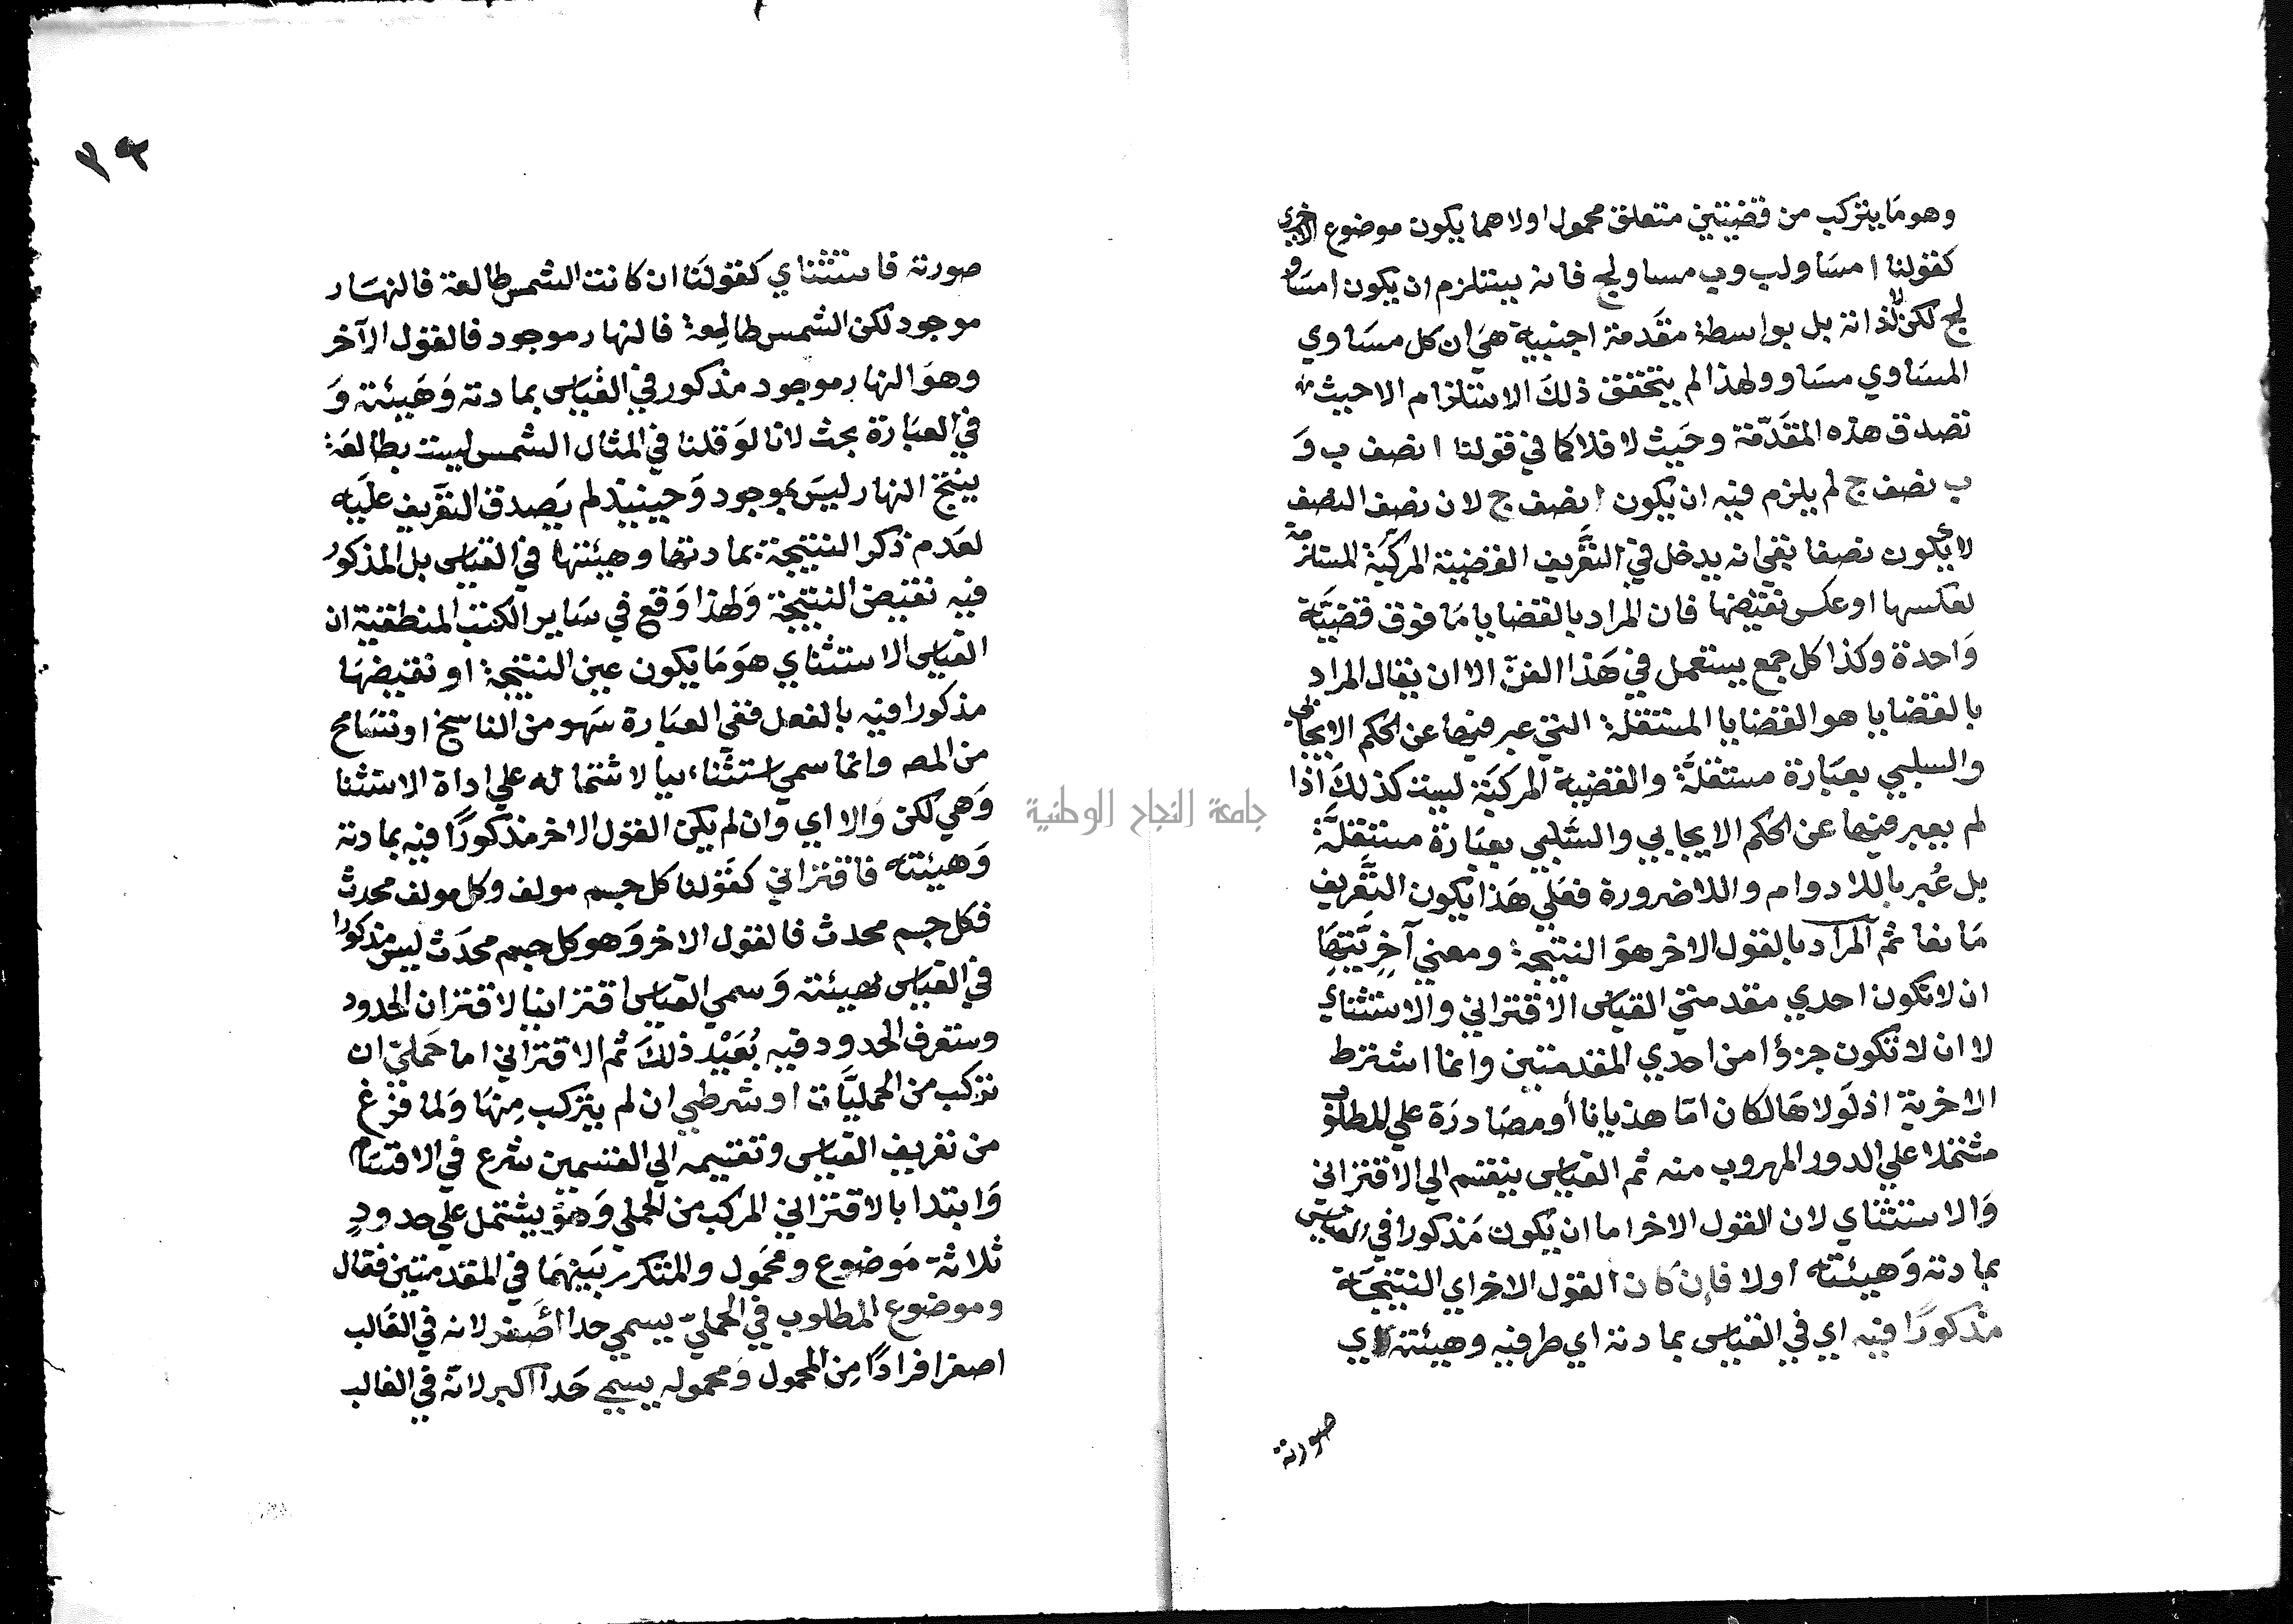 وهو مَا يتركب من قضيتين متعلق محمول اولاهما يكون موضوع الاخري
كقولنا ا مسَاو لب وب مساو لج فانه يستلزم ان يكون ا مسَاو
لج لكن لا لذاته بل بواسطة مقَدمة اجنبية هيَ ان كل مسَاوي
المسَاوي مسَاو ولهذا لم يتحقق ذلكَ الاستلزام الا حيث
تصدق هذه المقَدّمة وحَيث لا فلا كما في قولنا ا نصف ب وَ
ب نصف ج لم يلزم فيه ان يكون ا نصف ج لان نصف النصف
لا يكون نصفا بقي انه يدخل في التعَّريف القضية المركبَّة المستلزمة
لعكسها او عكس نقيضها فان المراد بالقضايا مَا فوق قضيَّة
وَاحدة وكذا كل جمع يستعمل في هَذا الفنّ الا ان يقال المراد
بالقضايا هو القضايا المستقلة التي عبر فيها عن الحكم الايجابي
والسلبي بعبَارة مستقلَّة والقضية المركبَة ليست كذلكَ اذا
لم يعبر فيها عن الحكم الايجابي والسَّلبي بعبَارة مستقلَّة
بل عُبر باللادوام واللاضرورة فعَلي هَذا يكون التَّعَريف
مَانعا ثم المرَاد بالقول الاخر هوَ النتيجة ومعني آخِريَّتهَا
ان لا تكون احدي مقدمتي القيَاس الاقتراني والاستثناي
لا ان لا تكون جزؤا من احدي المقدمتين وانما اشترط
الاخرية اذ لَولاهَا لكان امّا هذيانا أو مصَادرَة علي المطلوب
مشتملا علي الدور المهروب منه ثم القياس ينقسم الي الاقتراني
وَالاستثناي لان القول الاخر اما ان يكون مَذكورا في القياس
بمادته وَهيئته أولا فإن كَان القول الاخر اي النتيجَة
مذكورًا فيه اي في القياس بمادته اي طرفيه وهيئته اي
صورته
جامعة النجاح الوطنية
٣٩
صورته فاستثناي كقولَنا ان كانت الشمس طالعة فالنهَار
موجود لكن الشمس طالِعة فالنهار موجود فالقول الآخر
وهوَ النهار موجود مذكور في القيَاس بمادته وَهَيئته وَ
في العبَارة بحث لانا لوَ قلنا في المثال الشمس ليست بطالعَة
ينتج النهار ليسَ بموجود وَحينيذ لم يَصدق التعَريف علَيه
لعَدم ذكر النتيجة بمادتها وهيئتها في القيَاس بل المذكور
فيه نقيض النتيجة وَلهذا وَقع في سَاير الكتب المنطقية ان
القياس الاستثناي هوَ مَا يكون عين النتيجة او نقيضهَا
مذكورا فيه بالفعل ففي العبَارة سَهو من الناسخ او تسَامح
من المصـ وانما سمي استثَناييا لاشتماله علي اداة الاستثنا
وَهي لكن وَالا اي وَان لم يكن القول الاخر مذكورًا فيه بمادته
وَهيئته فاقتراني كقَولنا كل جسم مولف وكل مولف محدث
فكل جسم محدث فالقول الاخر وَهو كل جسم محدَث ليس مذكورا
في القياس بهيئته وَسمي القياس اقترانيا لاقتران الحدود
وستعرف الحدود فيه بُعَيْد ذلكَ ثم الاقتراني اما حَملي ان
تركب من الحمليَّات او شرطي ان لم يتركب مِنهَا وَلما فرَغ
من تعريف القياس وتقسيمه الي القسمين شرع في الاقسَام
وَابتدا بالاقتراني المركب من الحَملي وَهوَ يشتمل علي حدودٍ
ثلاثة مَوضوع ومحمَول والمتكرر بَينهمَا في المقدمتين فقال
وموضوع المطلوب في الحمليّ يسمي حدا أصَغر لانه في الغَالب
اصغر افرادًا مِن المحمول وَمحموله يسمي حَدا اكبر لانَه في الغالب